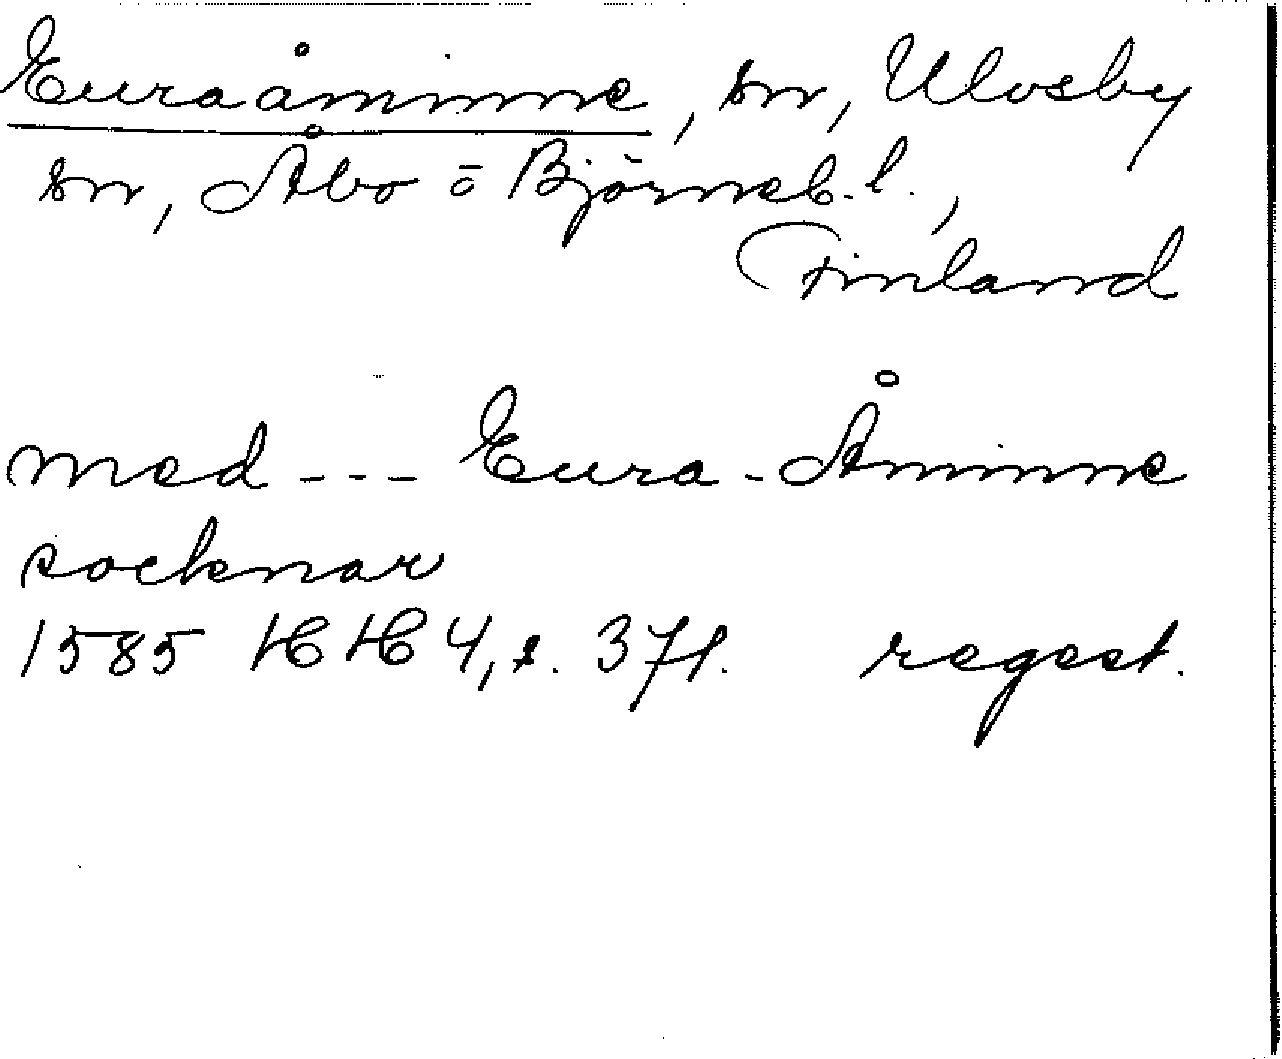 Euraåminne, sn, Ulvsby
sn, Åbo o Björneb. l.,
Finland
med --- Eura-Åminne
socknar
1585 HH 4, s. 37f. regest.